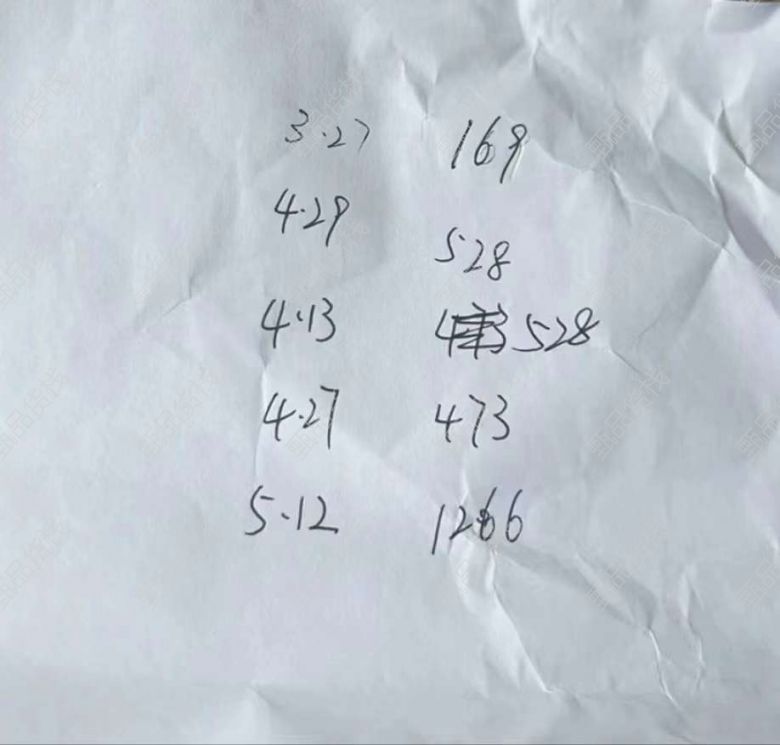 3.27 169
4.29 528
4.13 528
4.27 473
5.12 1266